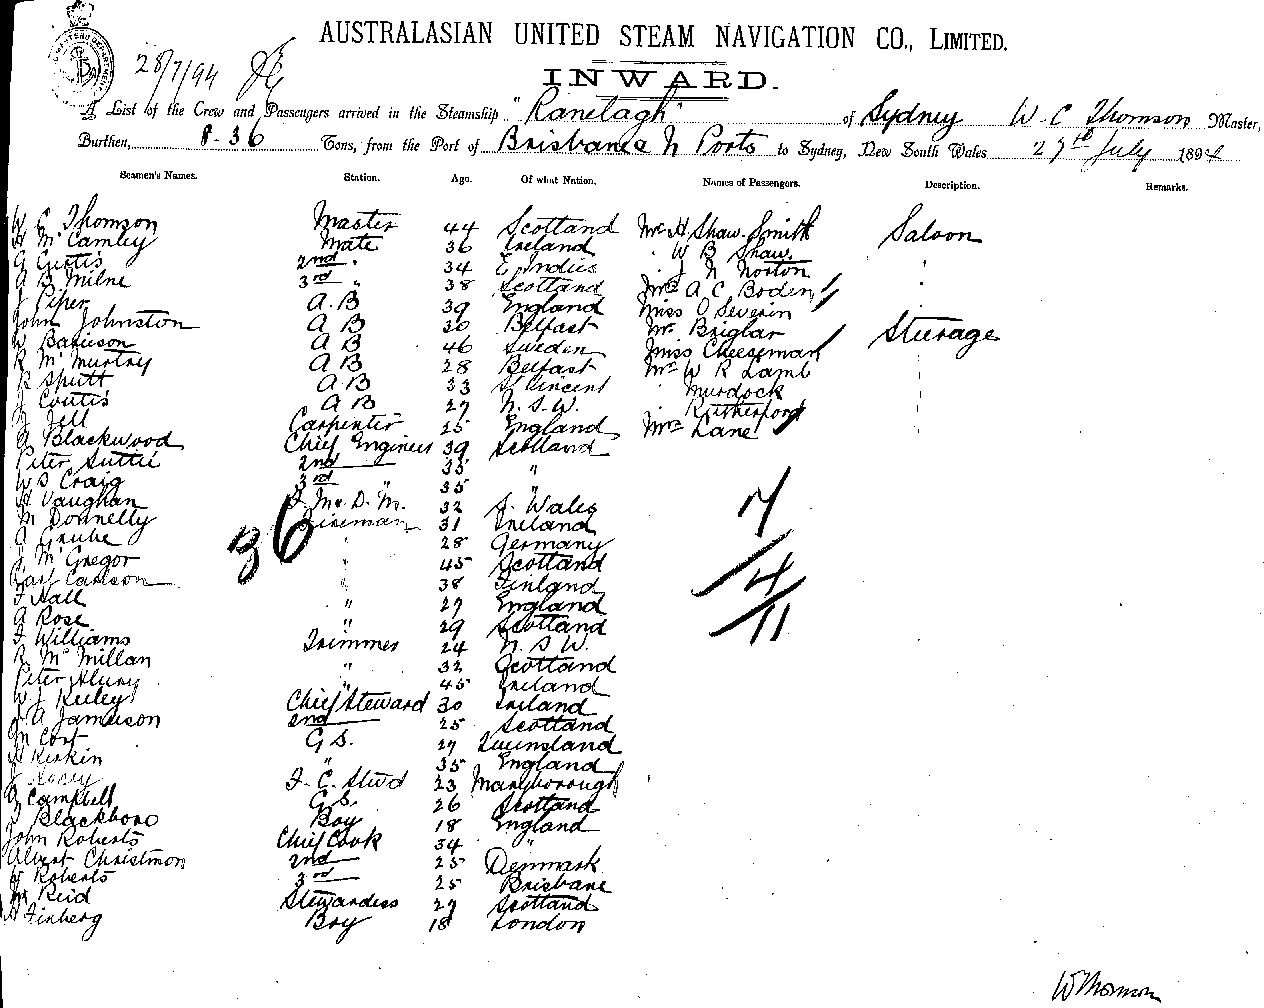 AUSTRALASIAN UNITED STEAM NAVIGATION CO., LIMITED.
28/7/94
INWARD.
A List of the Crew and Passengers arrived in the Steamship "Ranelagh" of Sydney W. C Thomson Master,
Burthen, 836 Tons, from the Port of Brisbane & N Ports to Sydney, New South Wales 27th July 1894
Seamen's Names. Station. Age. Of what Nation. Names of Passengers. Description. Remarks.
W C Thomson Master 44 Scotland Mr H Shaw Smith Saloon
H McCamley Mate 36 Ireland W B Shaw "
G Curtis 2nd " 34 E. Indies J N Norton "
A B Milne 3rd " 38 Scotland Mrs A C Boden "
J Piper A.B 39 England Miss O Severin "
John Johnston A B 30 Belfast Mr Briglar Sturage
W Baruson A B 46 Sweden Miss Cheeseman "
R McMurtry A B 28 Belfast Mr W R Lamb "
R Sputt A B 33 St Vincent Murdock "
J Coutis A B 27 N.S.W. Rutherford "
J Jell Carpenter 25 England Mrs Lane "
A Blackwood Chief Engineer 39 Scotland
Peter Suttie 2nd 35 "
W S Craig 3rd " 35 "
H Vaughan Mr. D. M. 32 S. Wales
M Donnelly Fireman 31 Ireland
A Grube " 28 Germany
J McGregor " 45 Scotland
Carl Carlson " 38 Finland
F Hall " 27 England
A Rose " 29 Scotland
F Williams Trimmer 24 N.S.W.
R McMillan " 32 Scotland
Peter " 45 Ireland
W J Keiley Chief Steward 30 Ireland
J A Jameison 2nd 25 Scotland
M Cort G S. 27 Queensland
H Kirkin " 35 England
J Lacey F. C. Stwd 23 Maryborough
A Campbell G.S. 26 Scotland
J Blackboro Boy 18 England
John Roberts Chief Cook 34 "
Albert Christmon 2nd 25 Denmark
W Roberts 3rd 25 Brisbane
M Reid Stewardess 27 Scotland
H Finberg Boy 18 London
36
7
4
11
W Thomson